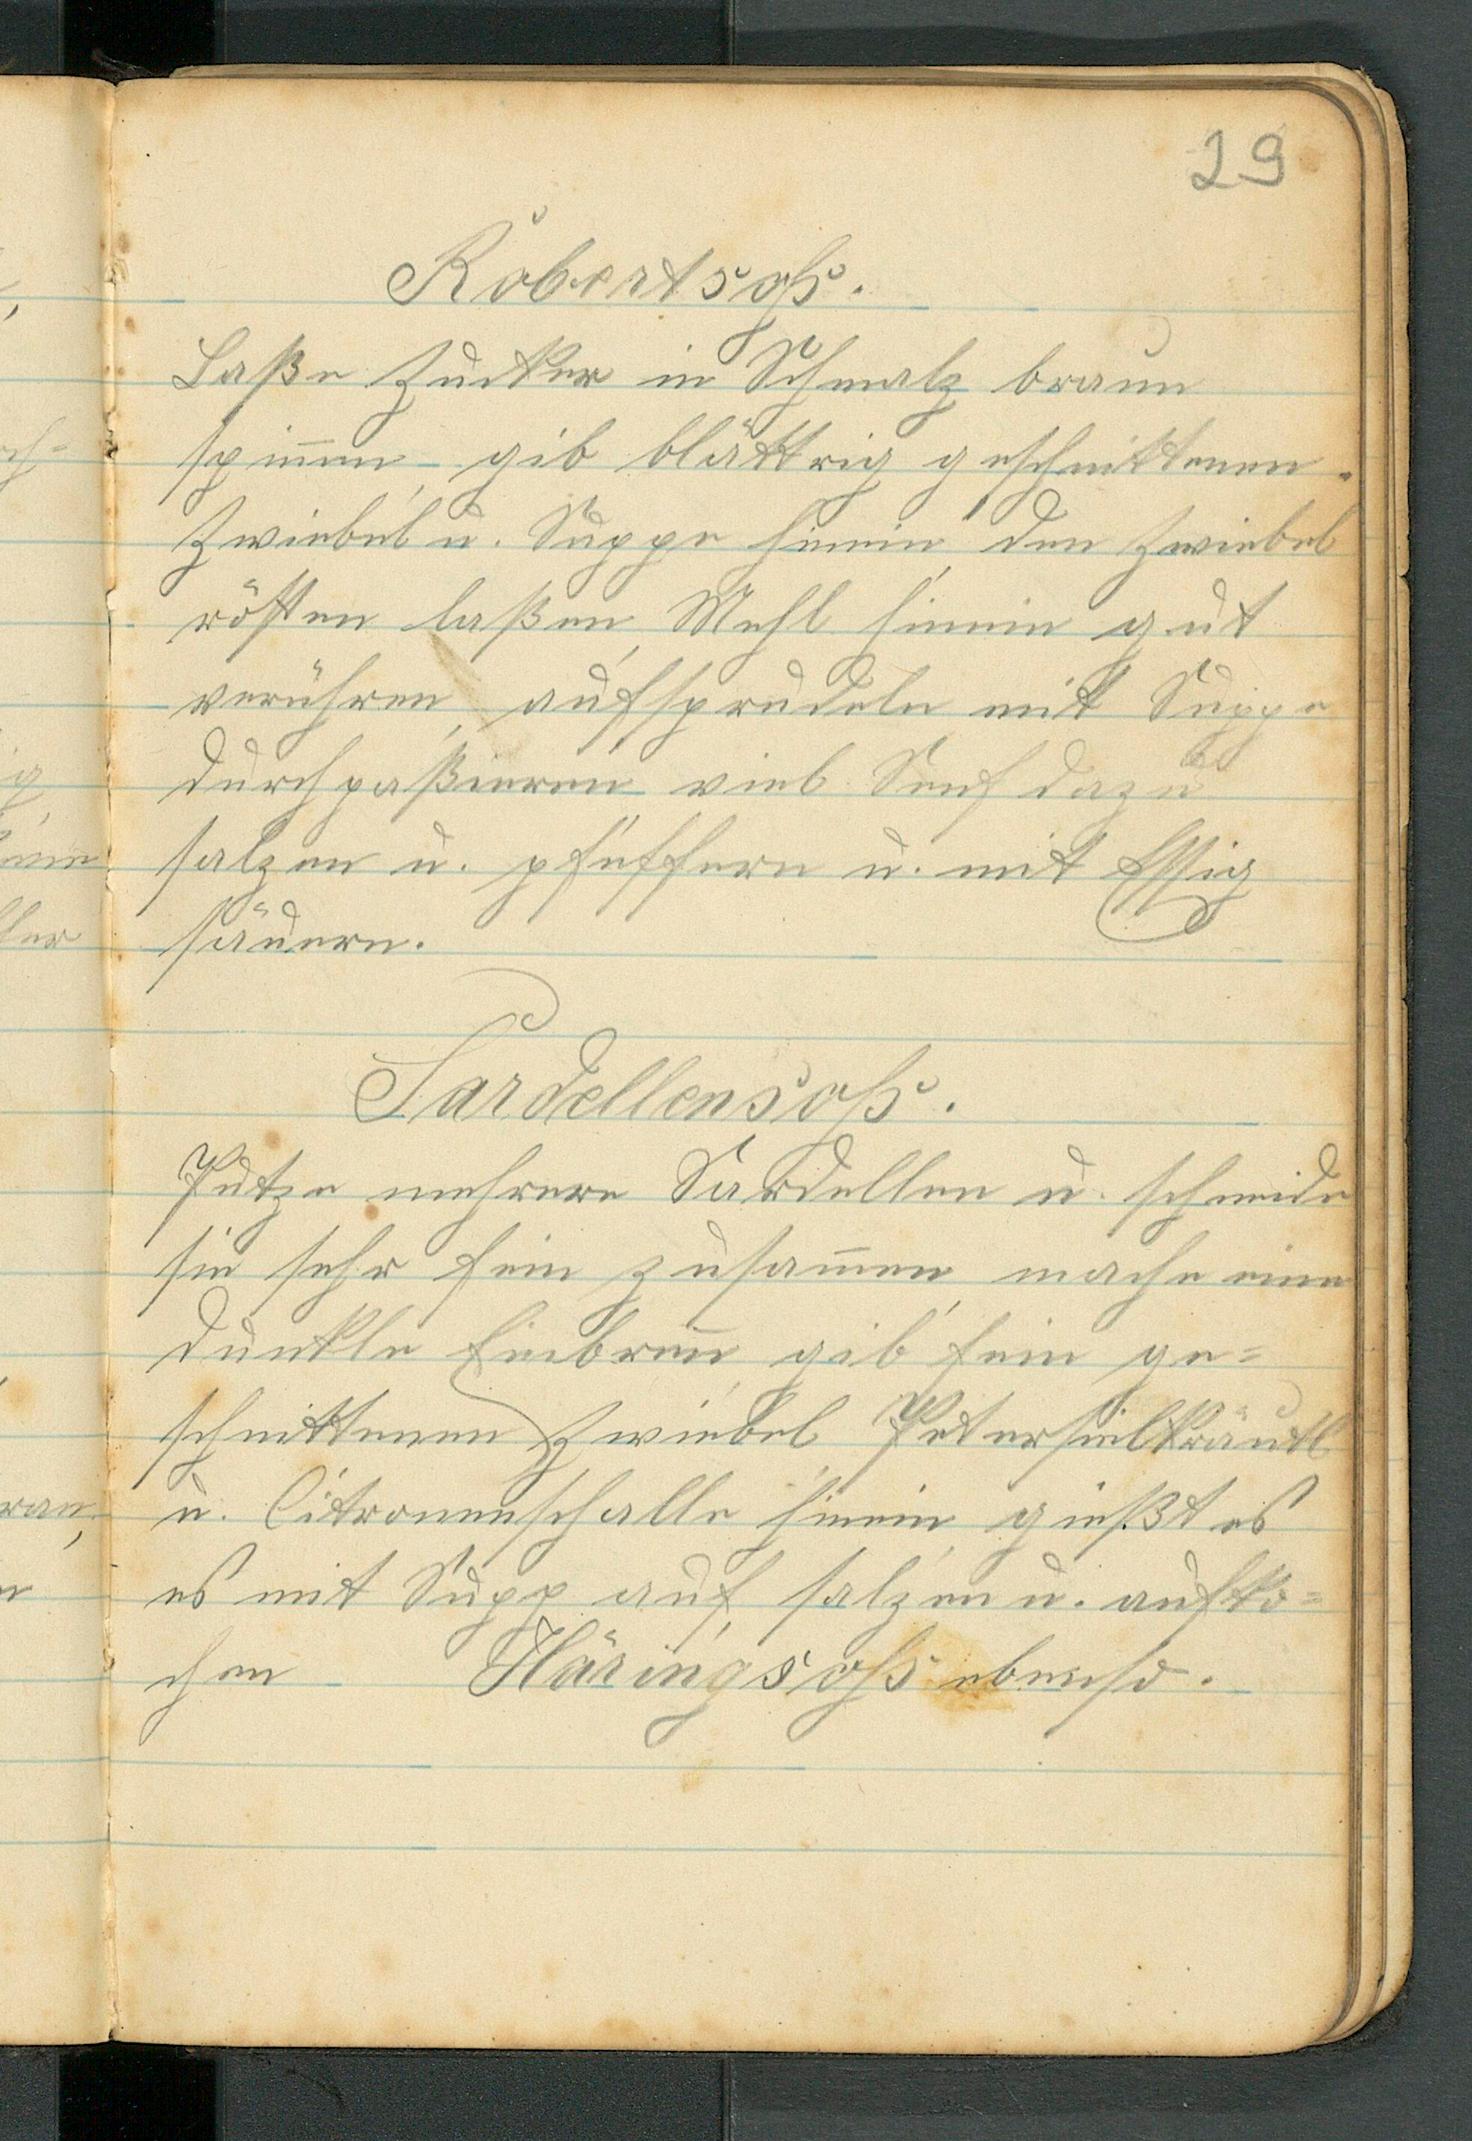 29
Robertsoß.
Laße Zucker in Schmalz braun
spin̄en, gib blättrig geschnittenen
Zwiebel u. Suppe hinein, den Zwiebel
rösten laßen, Mehl hinein gut
verühren, aufsprudeln mit Suppe
durchpaßieren viel Senf dazu
salzen u. pfeffern u. mit Essig
säuern.
Sardellensoß.
Putze mehrere Sardellen u. schneide
sie sehr fein zusam̄en, mache eine
dunkle Einbren̄, gib fein ge=
schnittenen Zwiebel Petersielkräutl
u. Citronenschalle hinein, gießt es
es mit Supp auf, salzen u. aufko=
chen Häringsoß ebenso.